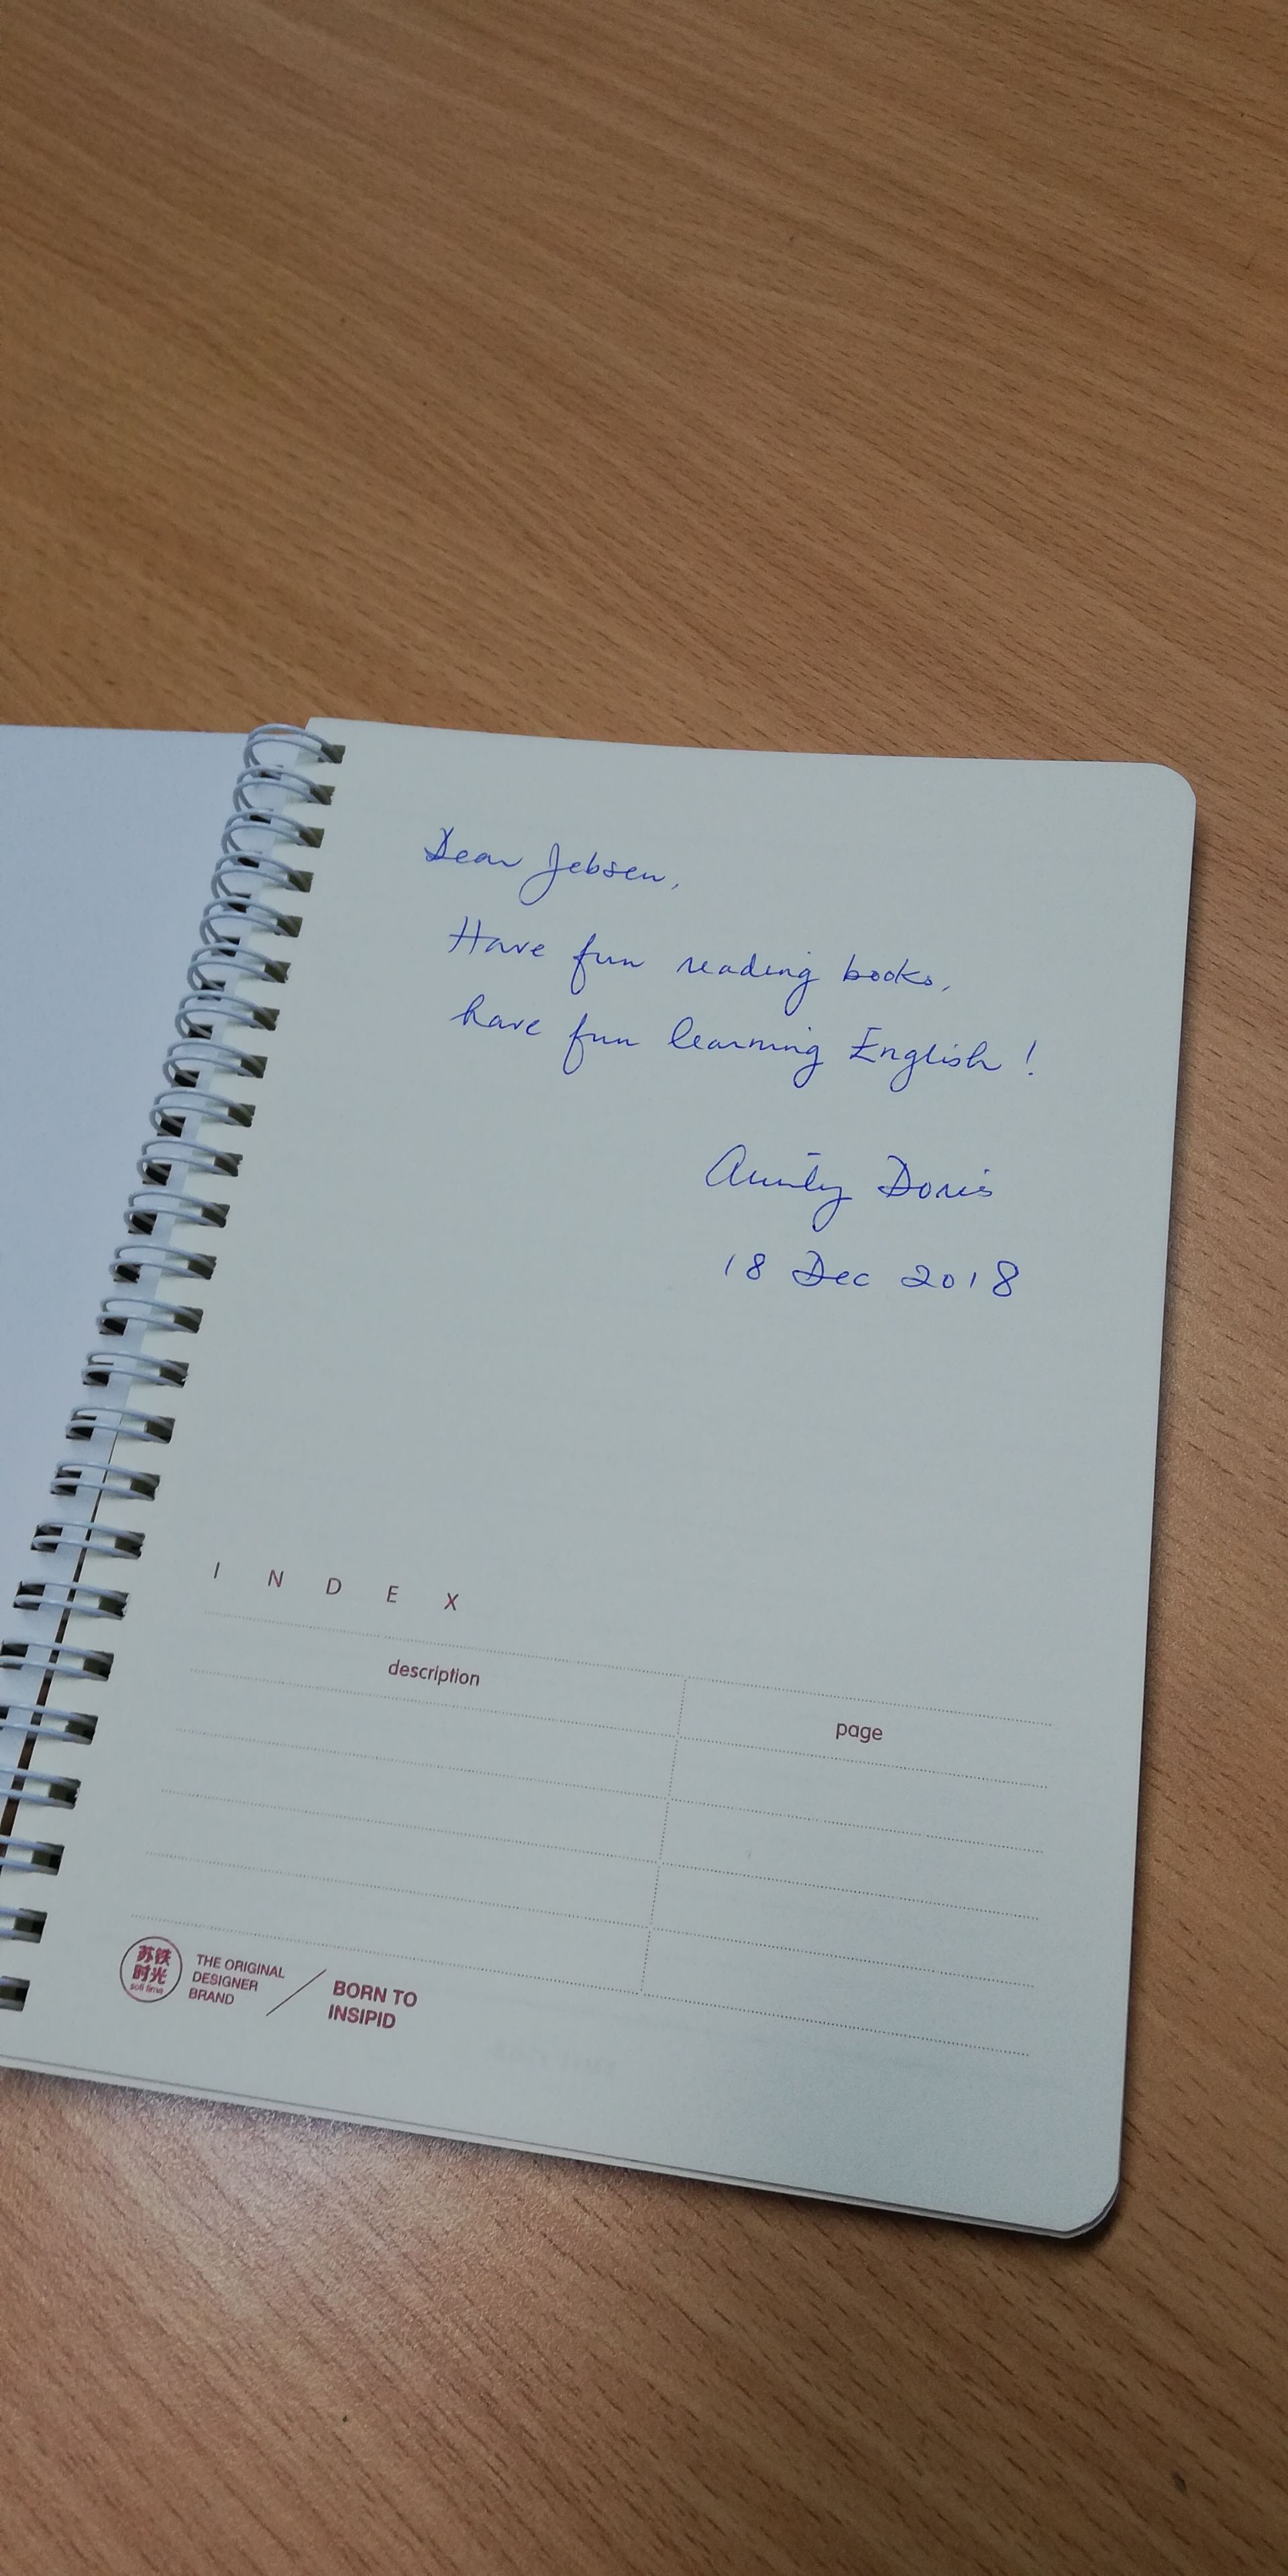 Dear Jebsen,
Have fun reading books,
have fun learning English!
Aunty Doris
18 Dec 2018
I N D E X
description
page
苏铁
时光
THE ORIGINAL
DESIGNER
BRAND
BORN TO
INSIPID